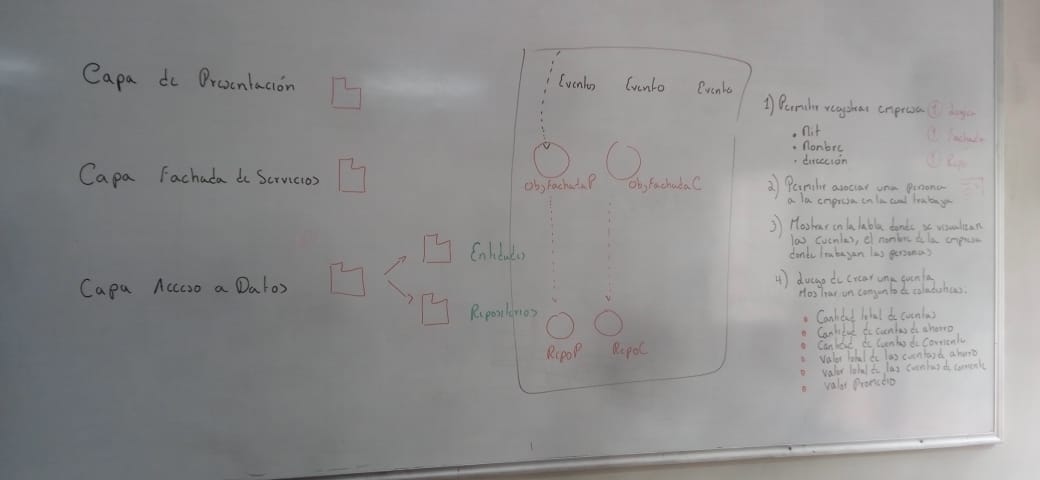 Capa de Presentación
Capa Fachada de Servicios
Capa Acceso a Datos
Entidades
Repositorios
Eventos
Evento
Evento
ObjFachadaP
ObjFachadaC
RepoP
RepoC
1) Permitir registrar empresa
• Nit
• Nombre
• dirección
1 Fachada
1 Repo
2) Permitir asociar una persona
a la empresa en la cual trabaja
3) Mostrar en la tabla donde se visualizan
las cuentas, el nombre de la empresa
donde trabajan las personas
4) Luego de crear una cuenta
Mostrar un conjunto de estadísticas.
• Cantidad total de cuentas
• Cantidad de cuentas de ahorro
• Cantidad de cuentas de corriente
• valor total de las cuentas de ahorro
• valor total de las cuentas de corriente
• valor Promedio